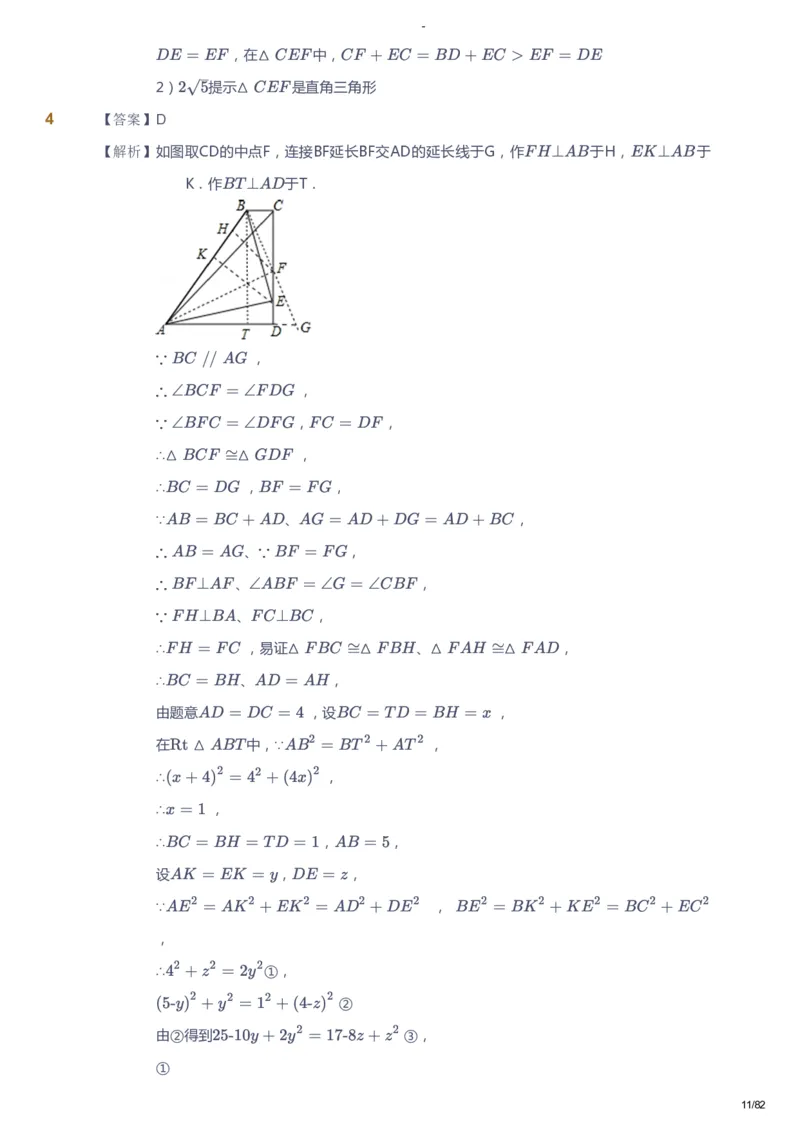 -
DE = EF，在△ CEF中，CF + EC = BD + EC > EF = DE
2）2√5提示△ CEF是直角三角形
4 【答案】D
【解析】如图取CD的中点F，连接BF延长BF交AD的延长线于G，作FH⊥AB于H，EK⊥AB于
K．作BT⊥AD于T．
B C
H
K
F
E
A T D G
∵ BC // AG ，
∴∠BCF = ∠FDG ，
∵∠BFC = ∠DFG，FC = DF，
∴△ BCF ≅△ GDF ，
∴BC = DG ，BF = FG，
∵AB = BC + AD、AG = AD + DG = AD + BC，
∴ AB = AG、∵ BF = FG，
∴ BF⊥AF、∠ABF = ∠G = ∠CBF，
∵ FH⊥BA、FC⊥BC，
∴FH = FC ，易证△ FBC ≅△ FBH、△ FAH ≅△ FAD，
∴BC = BH、AD = AH，
由题意AD = DC = 4 ，设BC = TD = BH = x ，
在Rt △ ABT中，∵AB² = BT² + AT² ，
∴(x + 4)² = 4² + (4x)² ，
∴x = 1 ，
∴BC = BH = TD = 1，AB = 5，
设AK = EK = y，DE = z，
∵AE² = AK² + EK² = AD² + DE² ，BE² = BK² + KE² = BC² + EC²
，
∴4² + z² = 2y²①，
(5-y)² + y² = 1² + (4-z)² ②
由②得到25-10y + 2y² = 17-8z + z² ③，
①
11/82